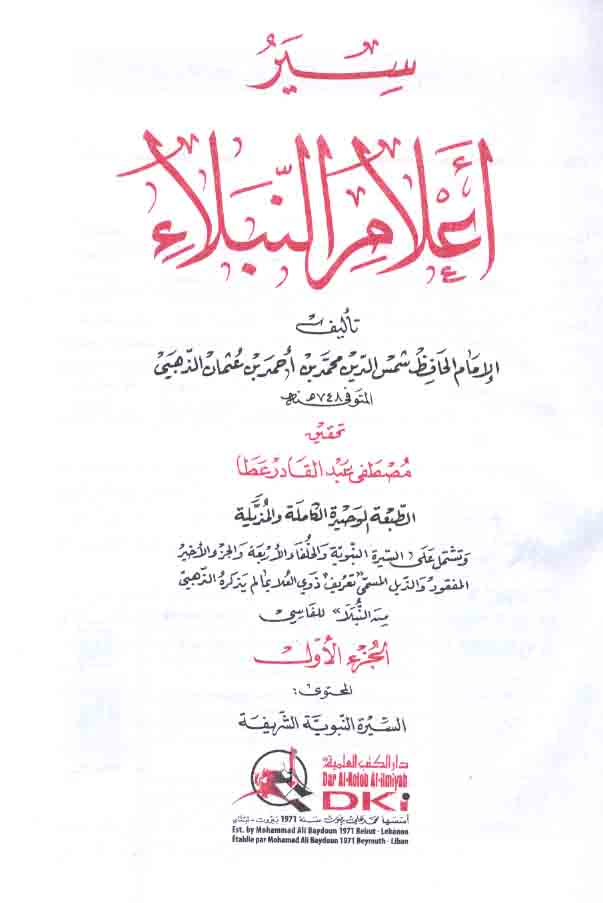 سِيَرُ
أَعْلَامِ النُّبَلَاءِ
تأليف
الإمام الحافظ شمس الدين محمد بن أحمد بن عثمان الذهبي
المتوفى ٧٤٨ هـ سنة
تحقيق
مصطفى عبد القادر عطا
الطبعة الوحيدة الكاملة والمذيلة
وتشتمل على السيرة النبوية والخلفاء الأربعة والجزء الأخير
المفقود والذيل المسمى "تعريف ذوي العلا بمن لم يذكره الذهبي
من النبلا" للفاسي
الجزء الأول
المحتوى:
السيرة النبوية الشريفة
دار الكتب العلمية
Dar Al-Kotob Al-ilmiyah
DKi
أسسها محمد علي بيضون سنة 1971 بيروت - لبنان
Est. by Mohammad Ali Baydoun 1971 Beirut - Lebanon
Établie par Mohamad Ali Baydoun 1971 Beyrouth - Liban